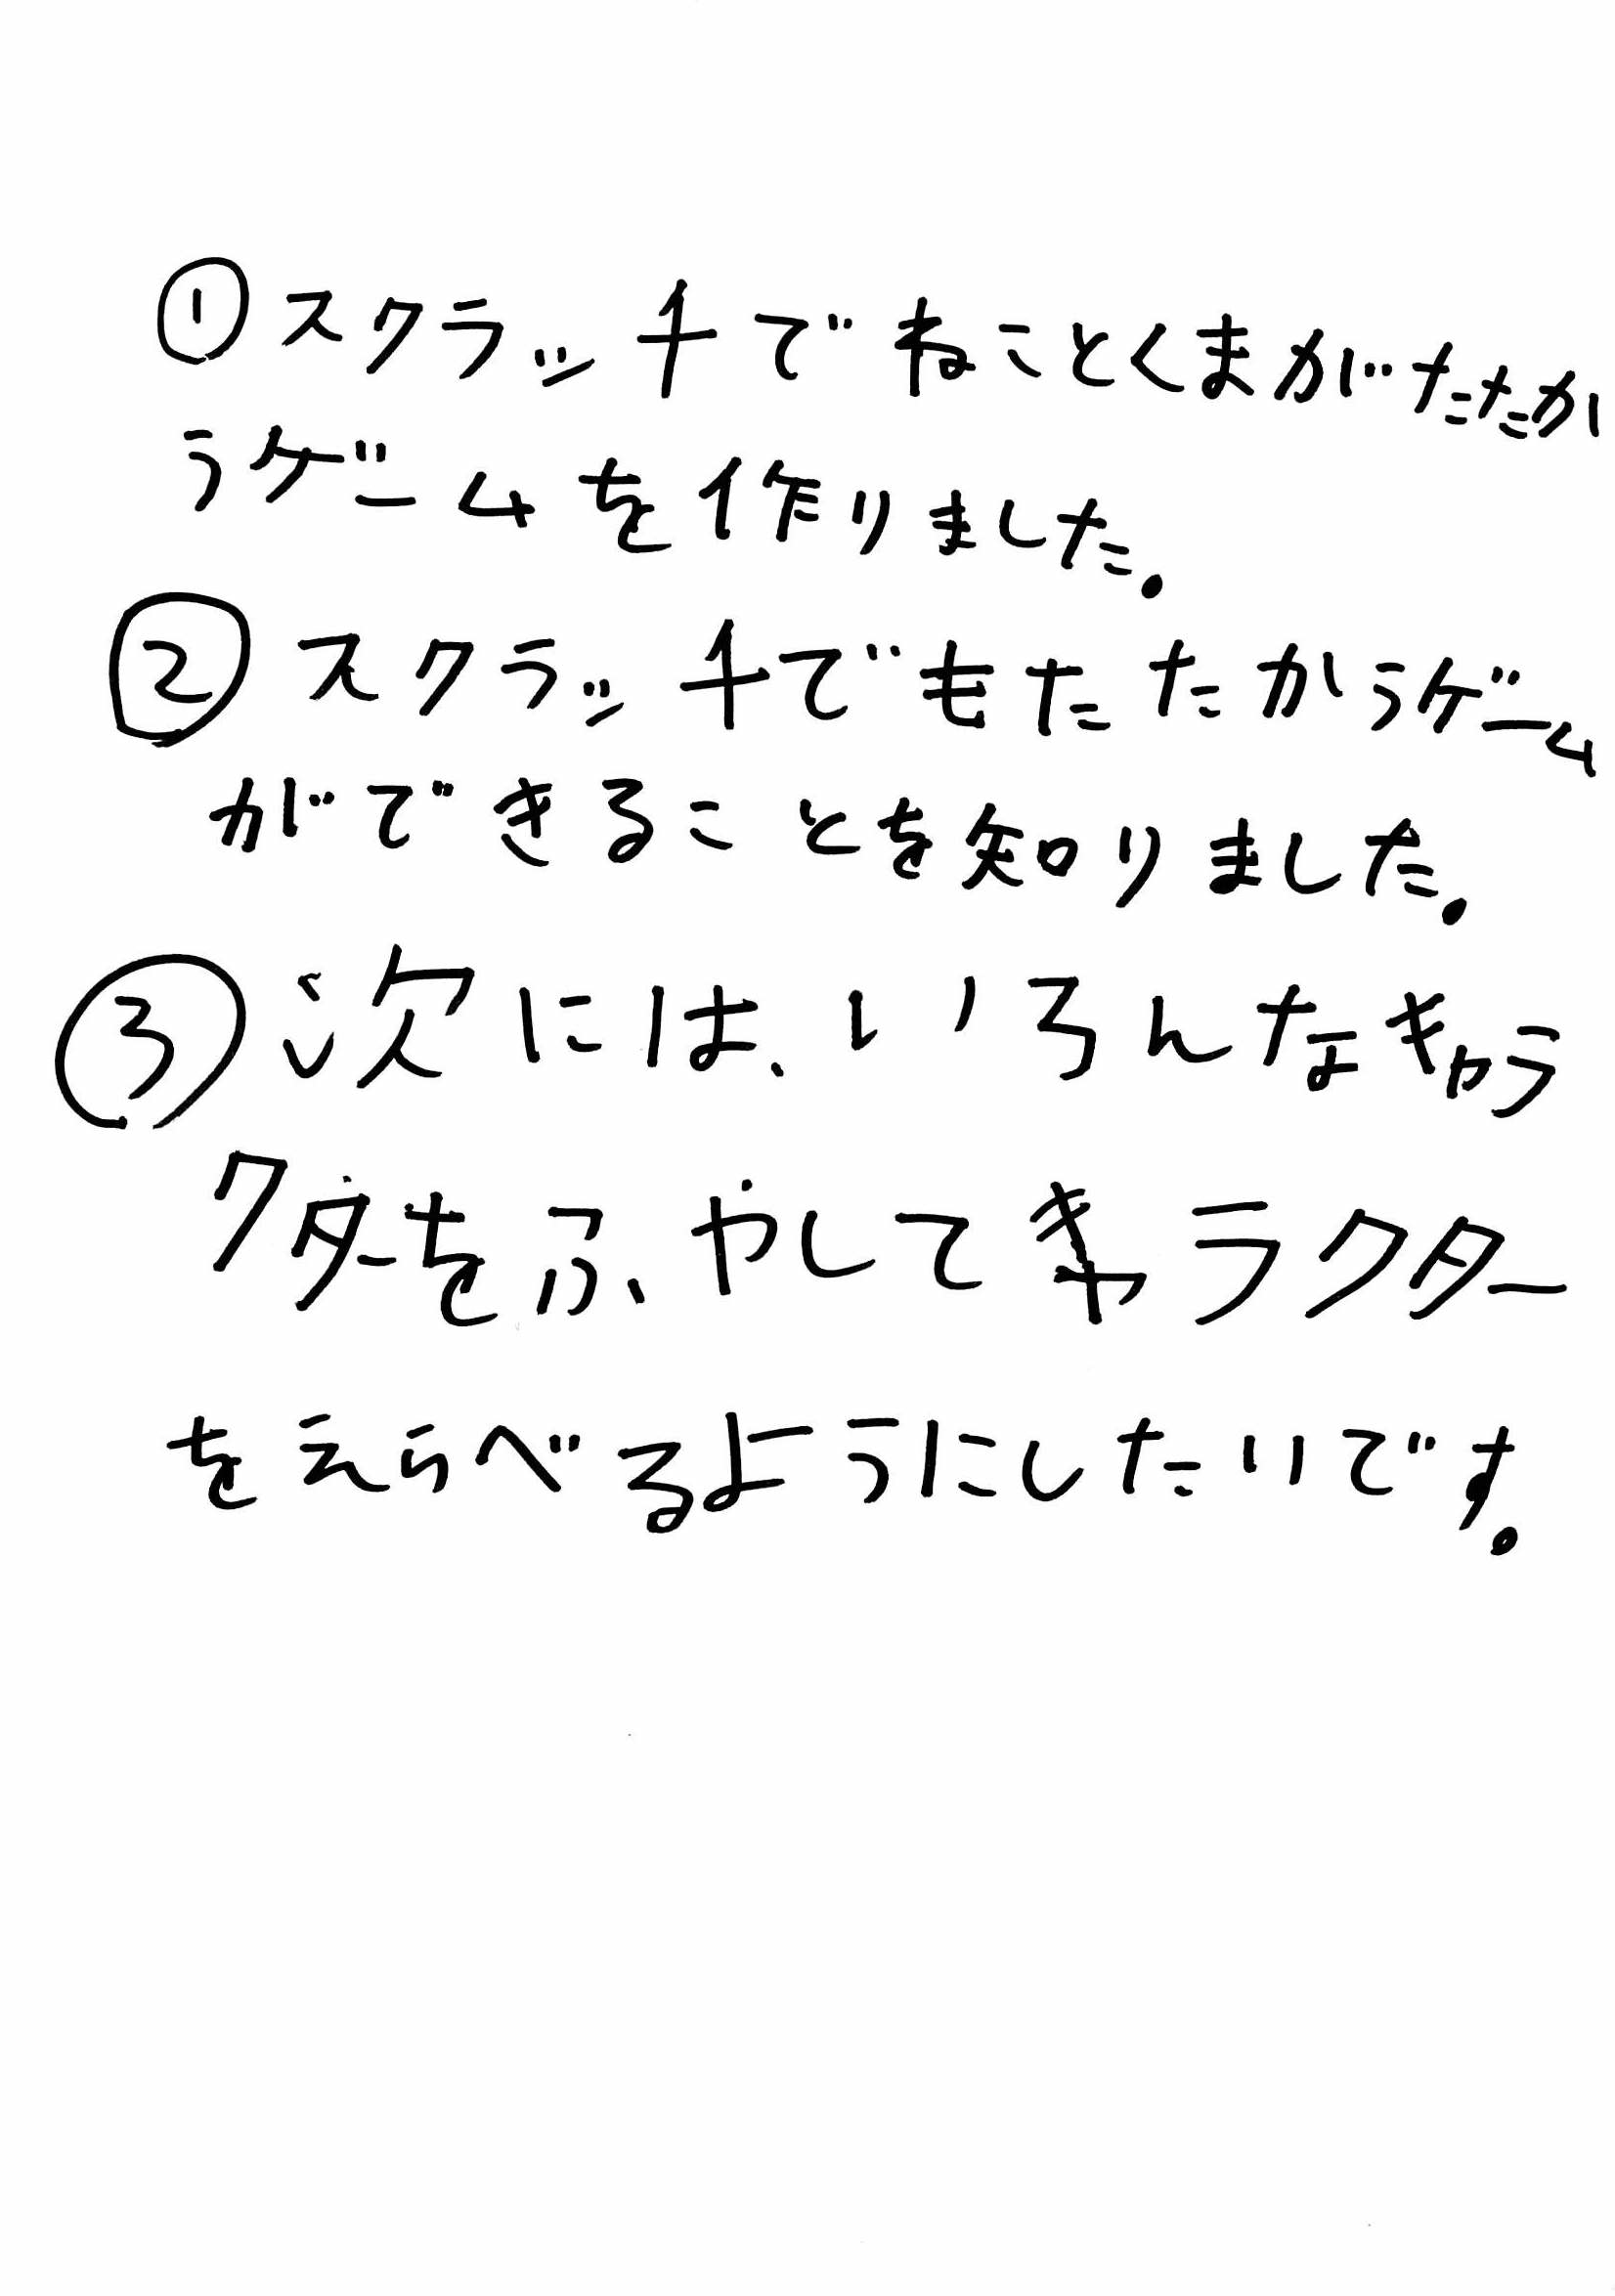 ①スクラッチでねことくまがたたか
うゲームを作りました。
②スクラッチでもたたかうゲーム
ができることを知りました。
③次には、いろんなキャラ
クターをふやしてキャラクター
をえらべるようにしたいです。